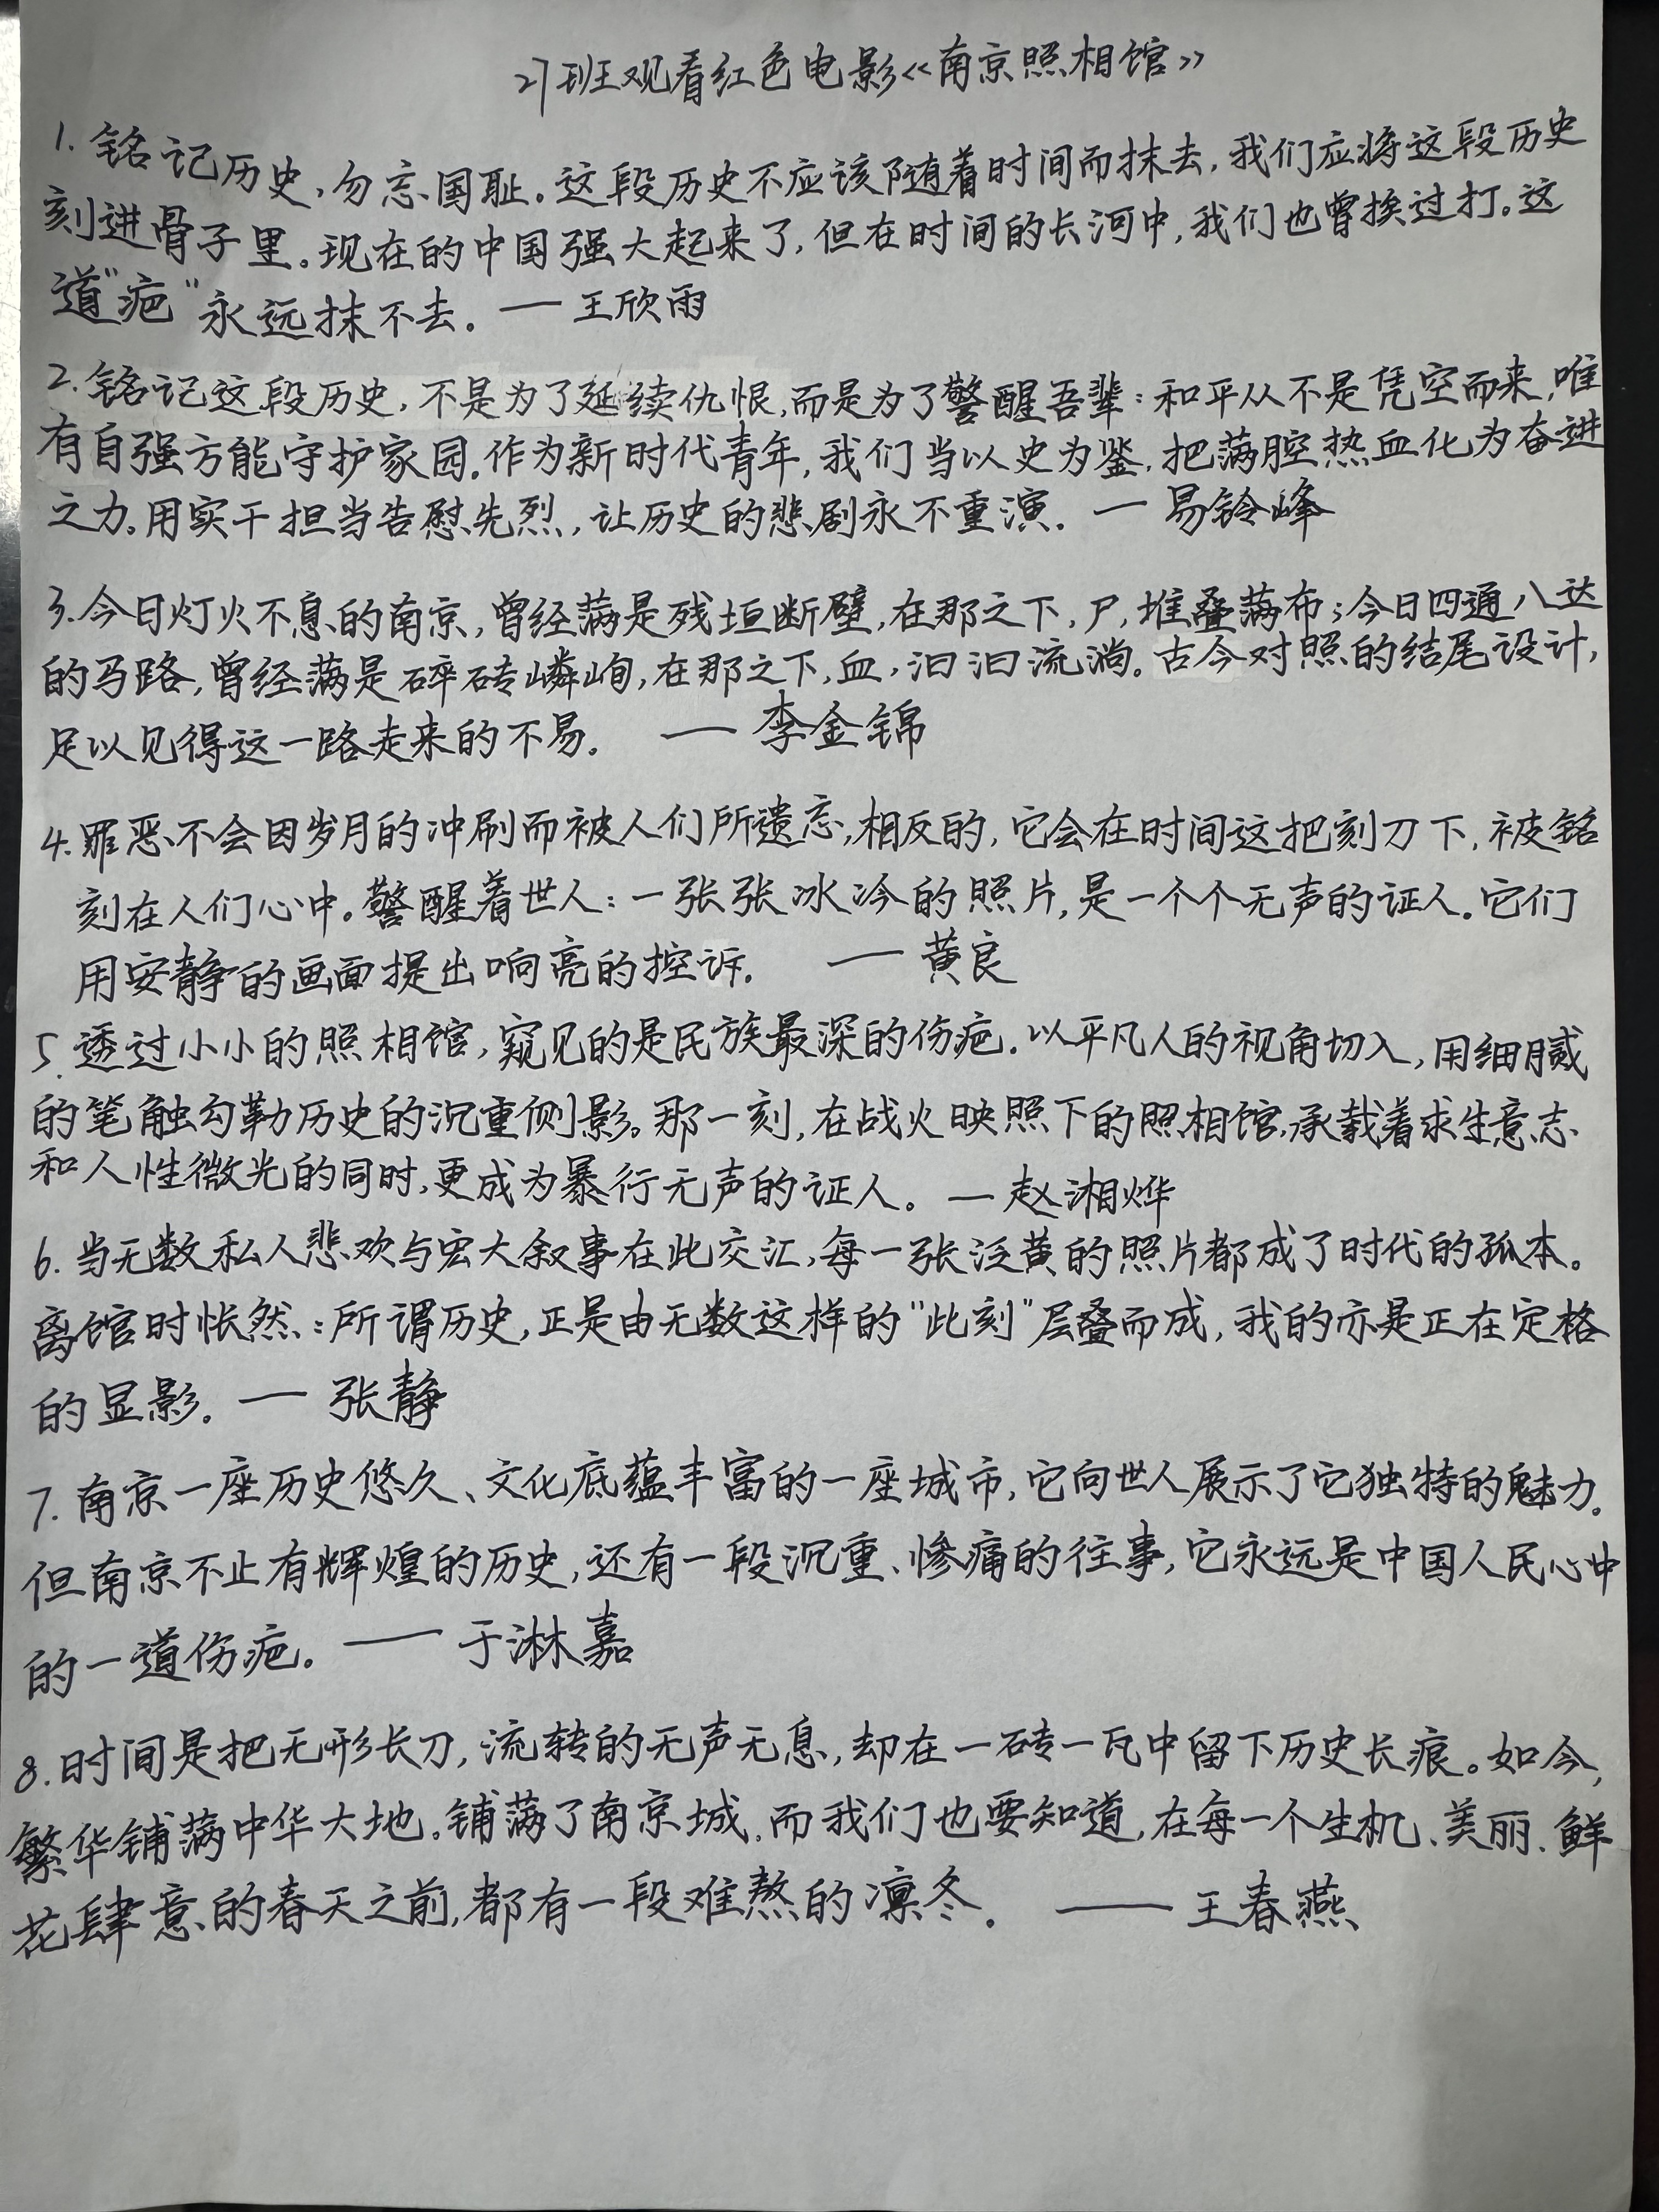 27班观看红色电影《南京照相馆》
1. 铭记历史，勿忘国耻。这段历史不应该随着时间而抹去，我们应将这段历史
刻进骨子里。现在的中国强大起来了，但在时间的长河中，我们也曾挨过打。这
道"疤"永远抹不去。——王欣雨
2. 铭记这段历史，不是为了延续仇恨，而是为了警醒吾辈：和平从不是凭空而来，唯
有自强方能守护家园。作为新时代青年，我们当以史为鉴，把满腔热血化为奋进
之力。用实干担当告慰先烈，让历史的悲剧永不重演。——易铃峰
3. 今日灯火不息的南京，曾经满是残垣断壁，在那之下，尸，堆叠满布；今日四通八达
的马路，曾经满是碎砖嶙峋，在那之下，血，汩汩流淌。古今对照的结尾设计，
足以见得这一路走来的不易。 ——李金锦
4. 罪恶不会因岁月的冲刷而被人们所遗忘，相反的，它会在时间这把刻刀下，被铭
刻在人们心中。警醒着世人：一张张冰冷的照片，是一个个无声的证人。它们
用安静的画面提出响亮的控诉。 ——黄良
5. 透过小小的照相馆，窥见的是民族最深的伤疤。以平凡人的视角切入，用细腻
的笔触勾勒历史的沉重侧影。那一刻，在战火映照下的照相馆，承载着求生意志
和人性微光的同时，更成为暴行无声的证人。——赵湘烨
6. 当无数私人悲欢与宏大叙事在此交汇，每一张泛黄的照片都成了时代的孤本。
离馆时怅然：所谓历史，正是由无数这样的"此刻"层叠而成，我的亦是正在定格
的显影。——张静
7. 南京一座历史悠久、文化底蕴丰富的一座城市，它向世人展示了它独特的魅力。
但南京不止有辉煌的历史，还有一段沉重、惨痛的往事，它永远是中国人民心中
的一道伤疤。——于淋嘉
8. 时间是把无形长刀，流转的无声无息，却在一砖一瓦中留下历史长痕。如今，
繁华铺满中华大地。铺满了南京城。而我们也要知道，在每一个生机、美丽、鲜
花肆意的春天之前，都有一段难熬的凛冬。 ——王春燕